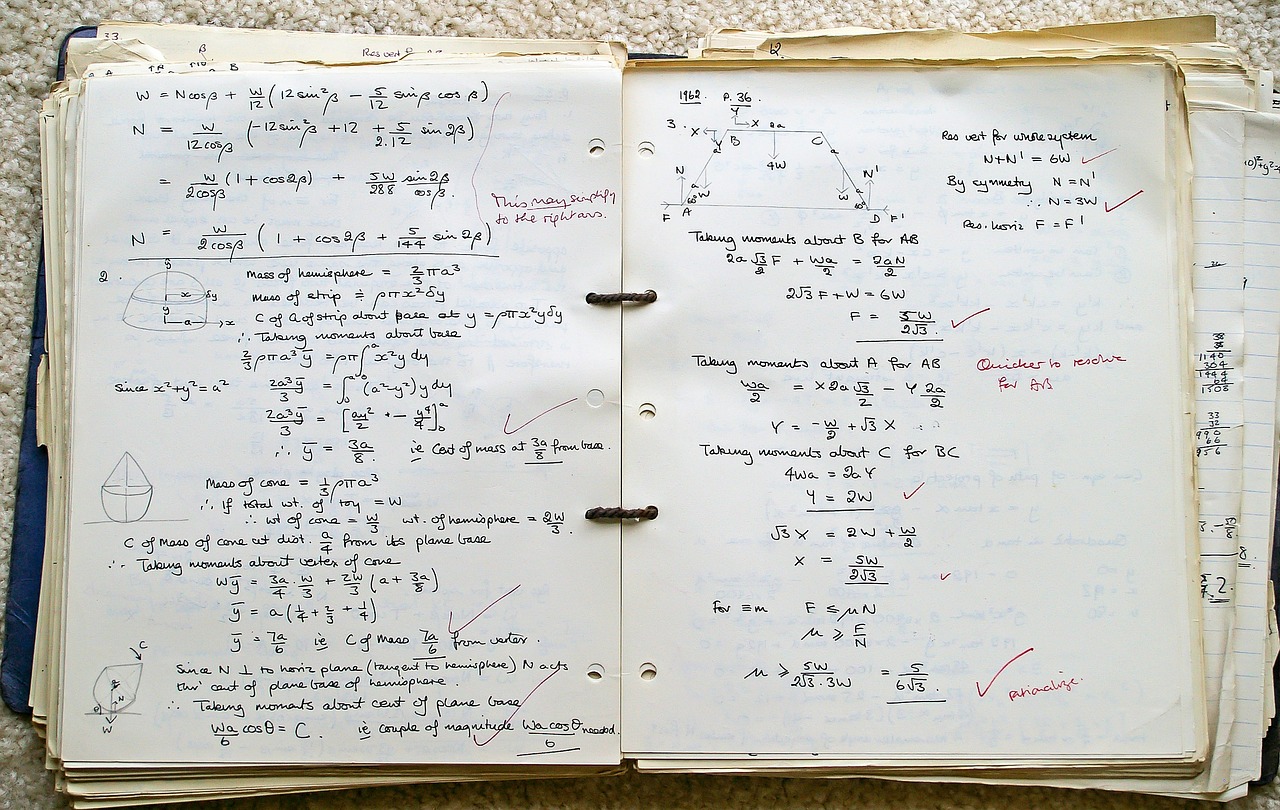 33.
β
Res vert
A
B
W = Ncosβ + W/12 (12 sin²β − 5/12 sinβ cosβ)
N = W/12cosβ (−12sin²β + 12 + 5/2.12 sin 2β)
= W/2cosβ (1 + cos2β) + 5W/288 sin2β/cosβ.
This may simplify
to the right ans.
N = W/2cosβ (1 + cos2β + 5/144 sin 2β)
2.
y
x
δy
y
a
x
Mass of hemisphere = 2/3 πa³
Mass of strip ≑ ρπx²δy
C of G of strip about base at y = ρπx²yδy
∴ Taking moments about base
2/3 ρπa³ȳ = ρπ∫₀ᵃ x²y dy
Since x²+y² = a² 2a³ȳ/3 = ∫₀ᵃ (a²−y²) y dy
2a³ȳ/3 = [ay²/2 − y⁴/4]₀ᵃ
∴ ȳ = 3a/8 ie Cent of mass at 3a/8 from base.
Mass of cone = 1/3 ρπa³
∴ If total wt. of toy = W
∴ wt of cone = W/3 wt. of hemisphere = 2W/3.
C of Mass of cone at dist. a/4 from its plane base
∴ Taking moments about vertex of cone
Wȳ = 3a/4 . W/3 + 2W/3 (a + 3a/8)
ȳ = a(1/4 + 2/3 + 1/4)
ȳ = 7a/6 ie C of Mass 7a/6 from vertex.
C
N
θ
W
Since N ⊥ to horiz plane (tangent to hemisphere) N acts
thro' cent of plane base of hemisphere.
∴ Taking moments about cent of plane base
Wa/6 cosθ = C. ie couple of magnitude Wa cosθ/6 needed.
12.
1962. P. 36.
3.
Y
X
X
2a
B
C
Y
a
a
4W
N
N'
a
a
W
W
60°
60°
F
A
D
F'
Res vert for whole system
N+N' = 6W
By symmetry N = N'
∴ N = 3W
Res. horiz F = F'
Taking moments about B for AB
2a √3/2 F + Wa/2 = 2aN/2
2√3 F + W = 6W
F = 5W/2√3.
Taking moments about A for AB
Quicker to resolve
for AB
Wa/2 = X 2a √3/2 − Y 2a/2
Y = −W/2 + √3 X
Taking moments about C for BC
4Wa = 2aY
Y = 2W
√3 X = 2W + W/2
X = 5W/2√3
For ≡m F ≤ μN
μ ≥ F/N
μ ≥ 5W/2√3.3W = 5/6√3.
rationalize.
38
38
1140
304
1444
64
1508
33
32
990
66
956
8.
2.